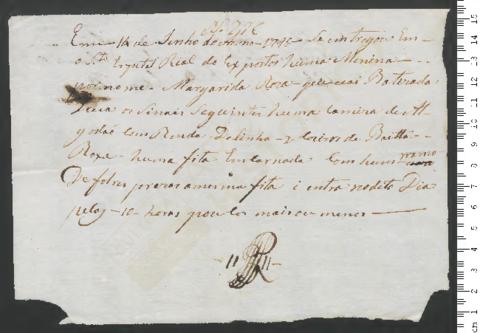 Em 14 de Junho de 1795 Se entregou Em
o Sto. Ospital Rial de Expostos huma Menina
por nome Margarida Roza que vai Batizada
Leva os Sinais Seguintes huma Camiza de Al
godão Com Renda De linha
Roxa huma fita Encarnada Com hum ramo
De folres prezo a mesma fita i entra no dito Dia
pelas 10 horas pouco mais ou menos